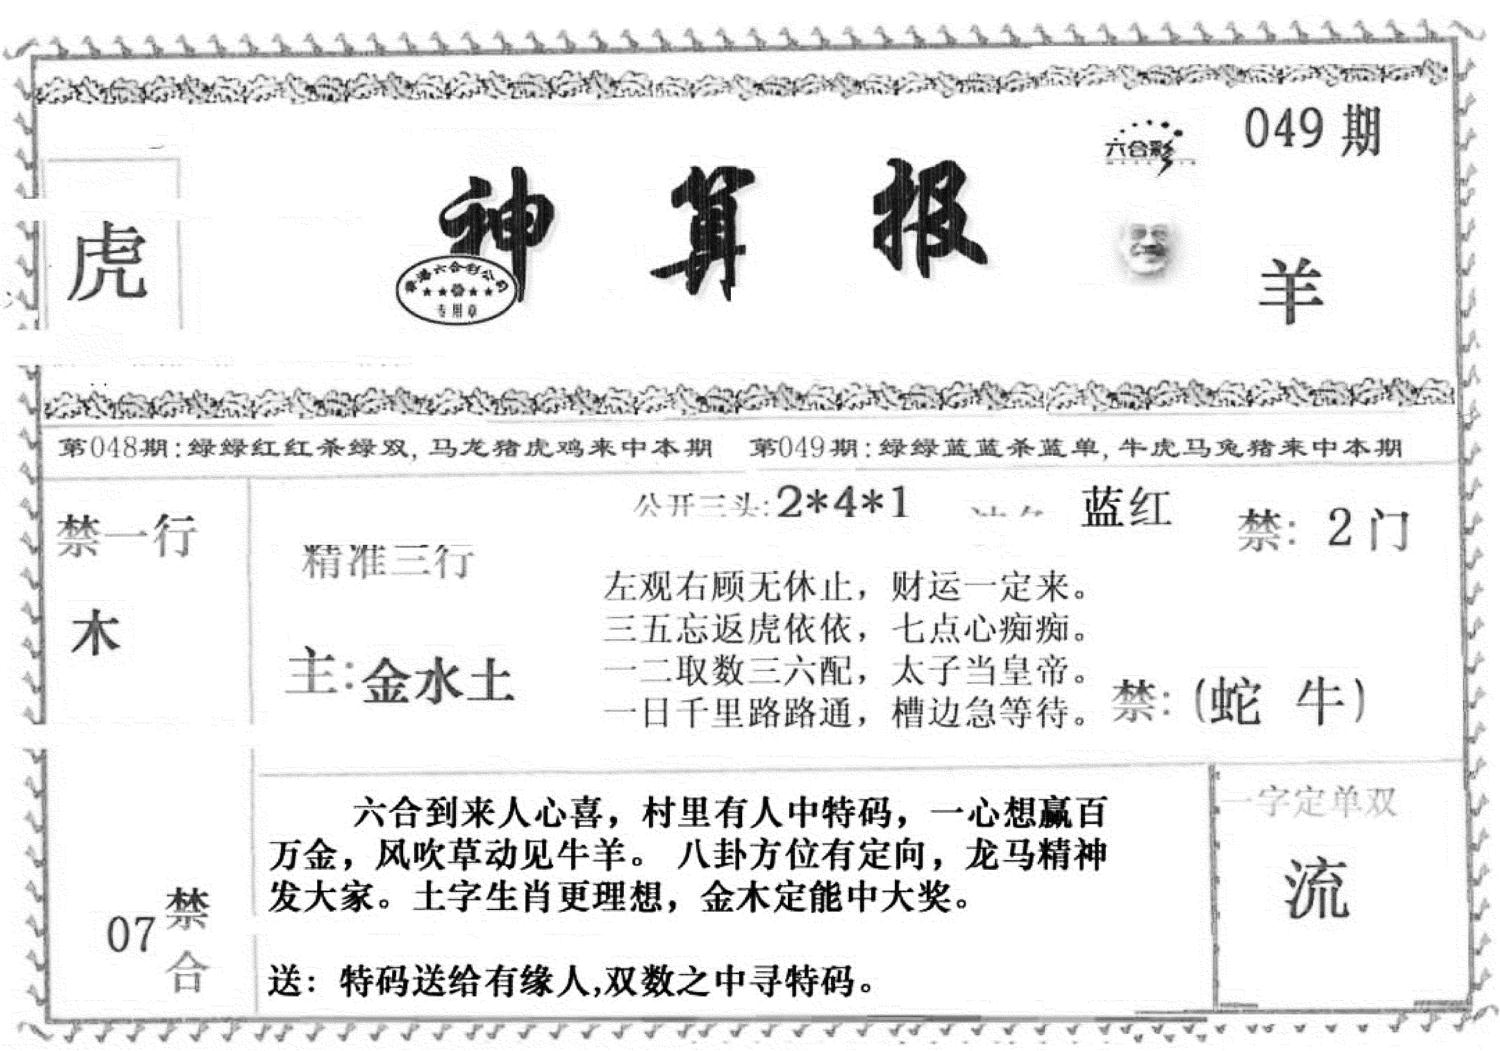 049期
六合彩
虎
神算报
香港六合彩公司
专用章
羊
第048期:绿绿红红杀绿双,马龙猪虎鸡来中本期 第049期:绿绿蓝蓝杀蓝单,牛虎马兔猪来中本期
禁一行
木
公开三头:2*4*1
蓝红
禁: 2门
精准三行
主:金水土
左观右顾无休止，财运一定来。
三五忘返虎依依，七点心痴痴。
一二取数三六配，太子当皇帝。
一日千里路路通，槽边急等待。
禁:(蛇 牛)
07禁合
六合到来人心喜，村里有人中特码，一心想赢百
万金，风吹草动见牛羊。八卦方位有定向，龙马精神
发大家。土字生肖更理想，金木定能中大奖。
送：特码送给有缘人,双数之中寻特码。
一字定单双
流